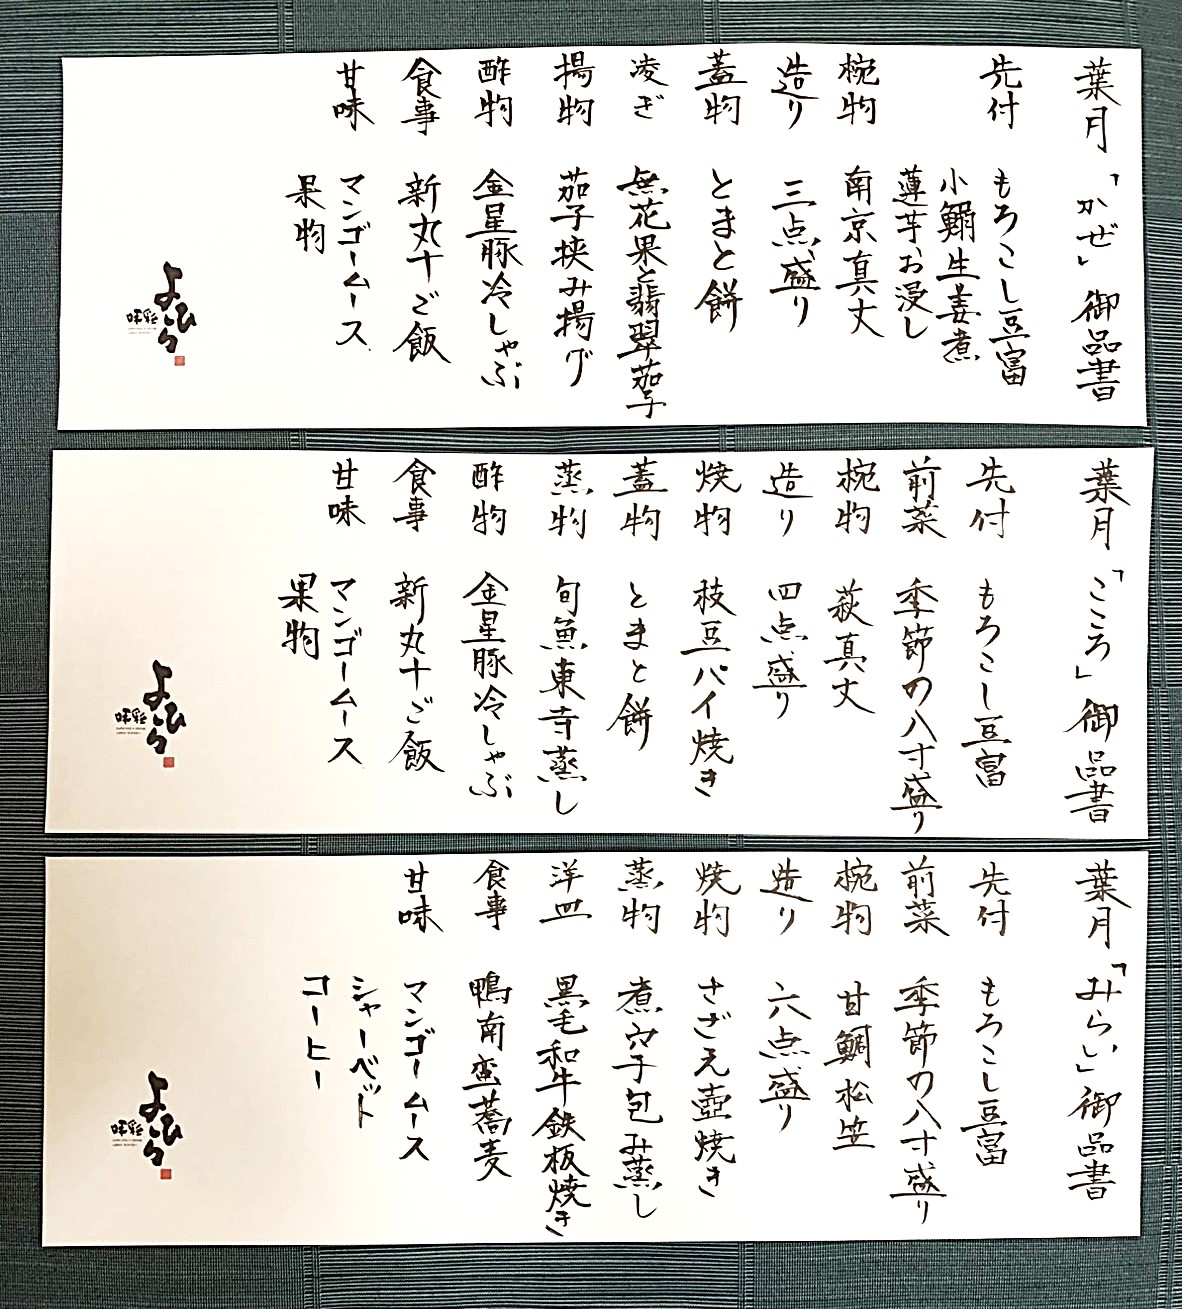 葉月「かぜ」御品書
先付 もろこし豆富
小鯛生姜煮
蓮芋お浸し
椀物 南京真丈
造り 三点盛り
蓋物 とまと餅
凌ぎ 無花果と翡翠茄子
揚物 茄子挟み揚げ
酢物 金星豚冷しゃぶ
食事 新丸十ご飯
甘味 マンゴームース
果物
味彩
よひら
葉月「こころ」御品書
先付 もろこし豆富
前菜 季節の八寸盛り
椀物 萩真丈
造り 四点盛り
焼物 枝豆パイ焼き
蓋物 とまと餅
蒸物 旬魚東寺蒸し
酢物 金星豚冷しゃぶ
食事 新丸十ご飯
甘味 マンゴームース
果物
味彩
よひら
葉月「みらい」御品書
先付 もろこし豆富
前菜 季節の八寸盛り
椀物 甘鯛松笠
造り 六点盛り
焼物 さざえ壺焼き
蒸物 煮穴子包み蒸し
洋皿 黒毛和牛鉄板焼き
食事 鴨南蛮蕎麦
甘味 マンゴームース
シャーベット
コーヒー
味彩
よひら